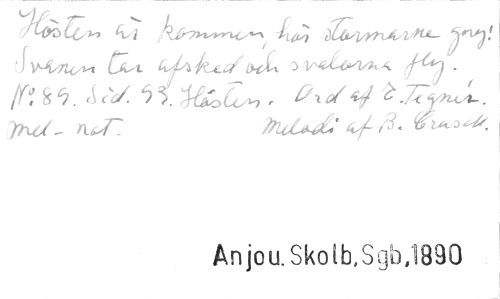 Hösten är kommen, hör stormarne gny!
Svanen tar afsked och svalorna fly.
No: 89. Sid. 93. Hösten. Ord af E. Tegnér.
mel - nat. Melodi af B. Crusell.
Anjou. Skolb, Sgb, 1890